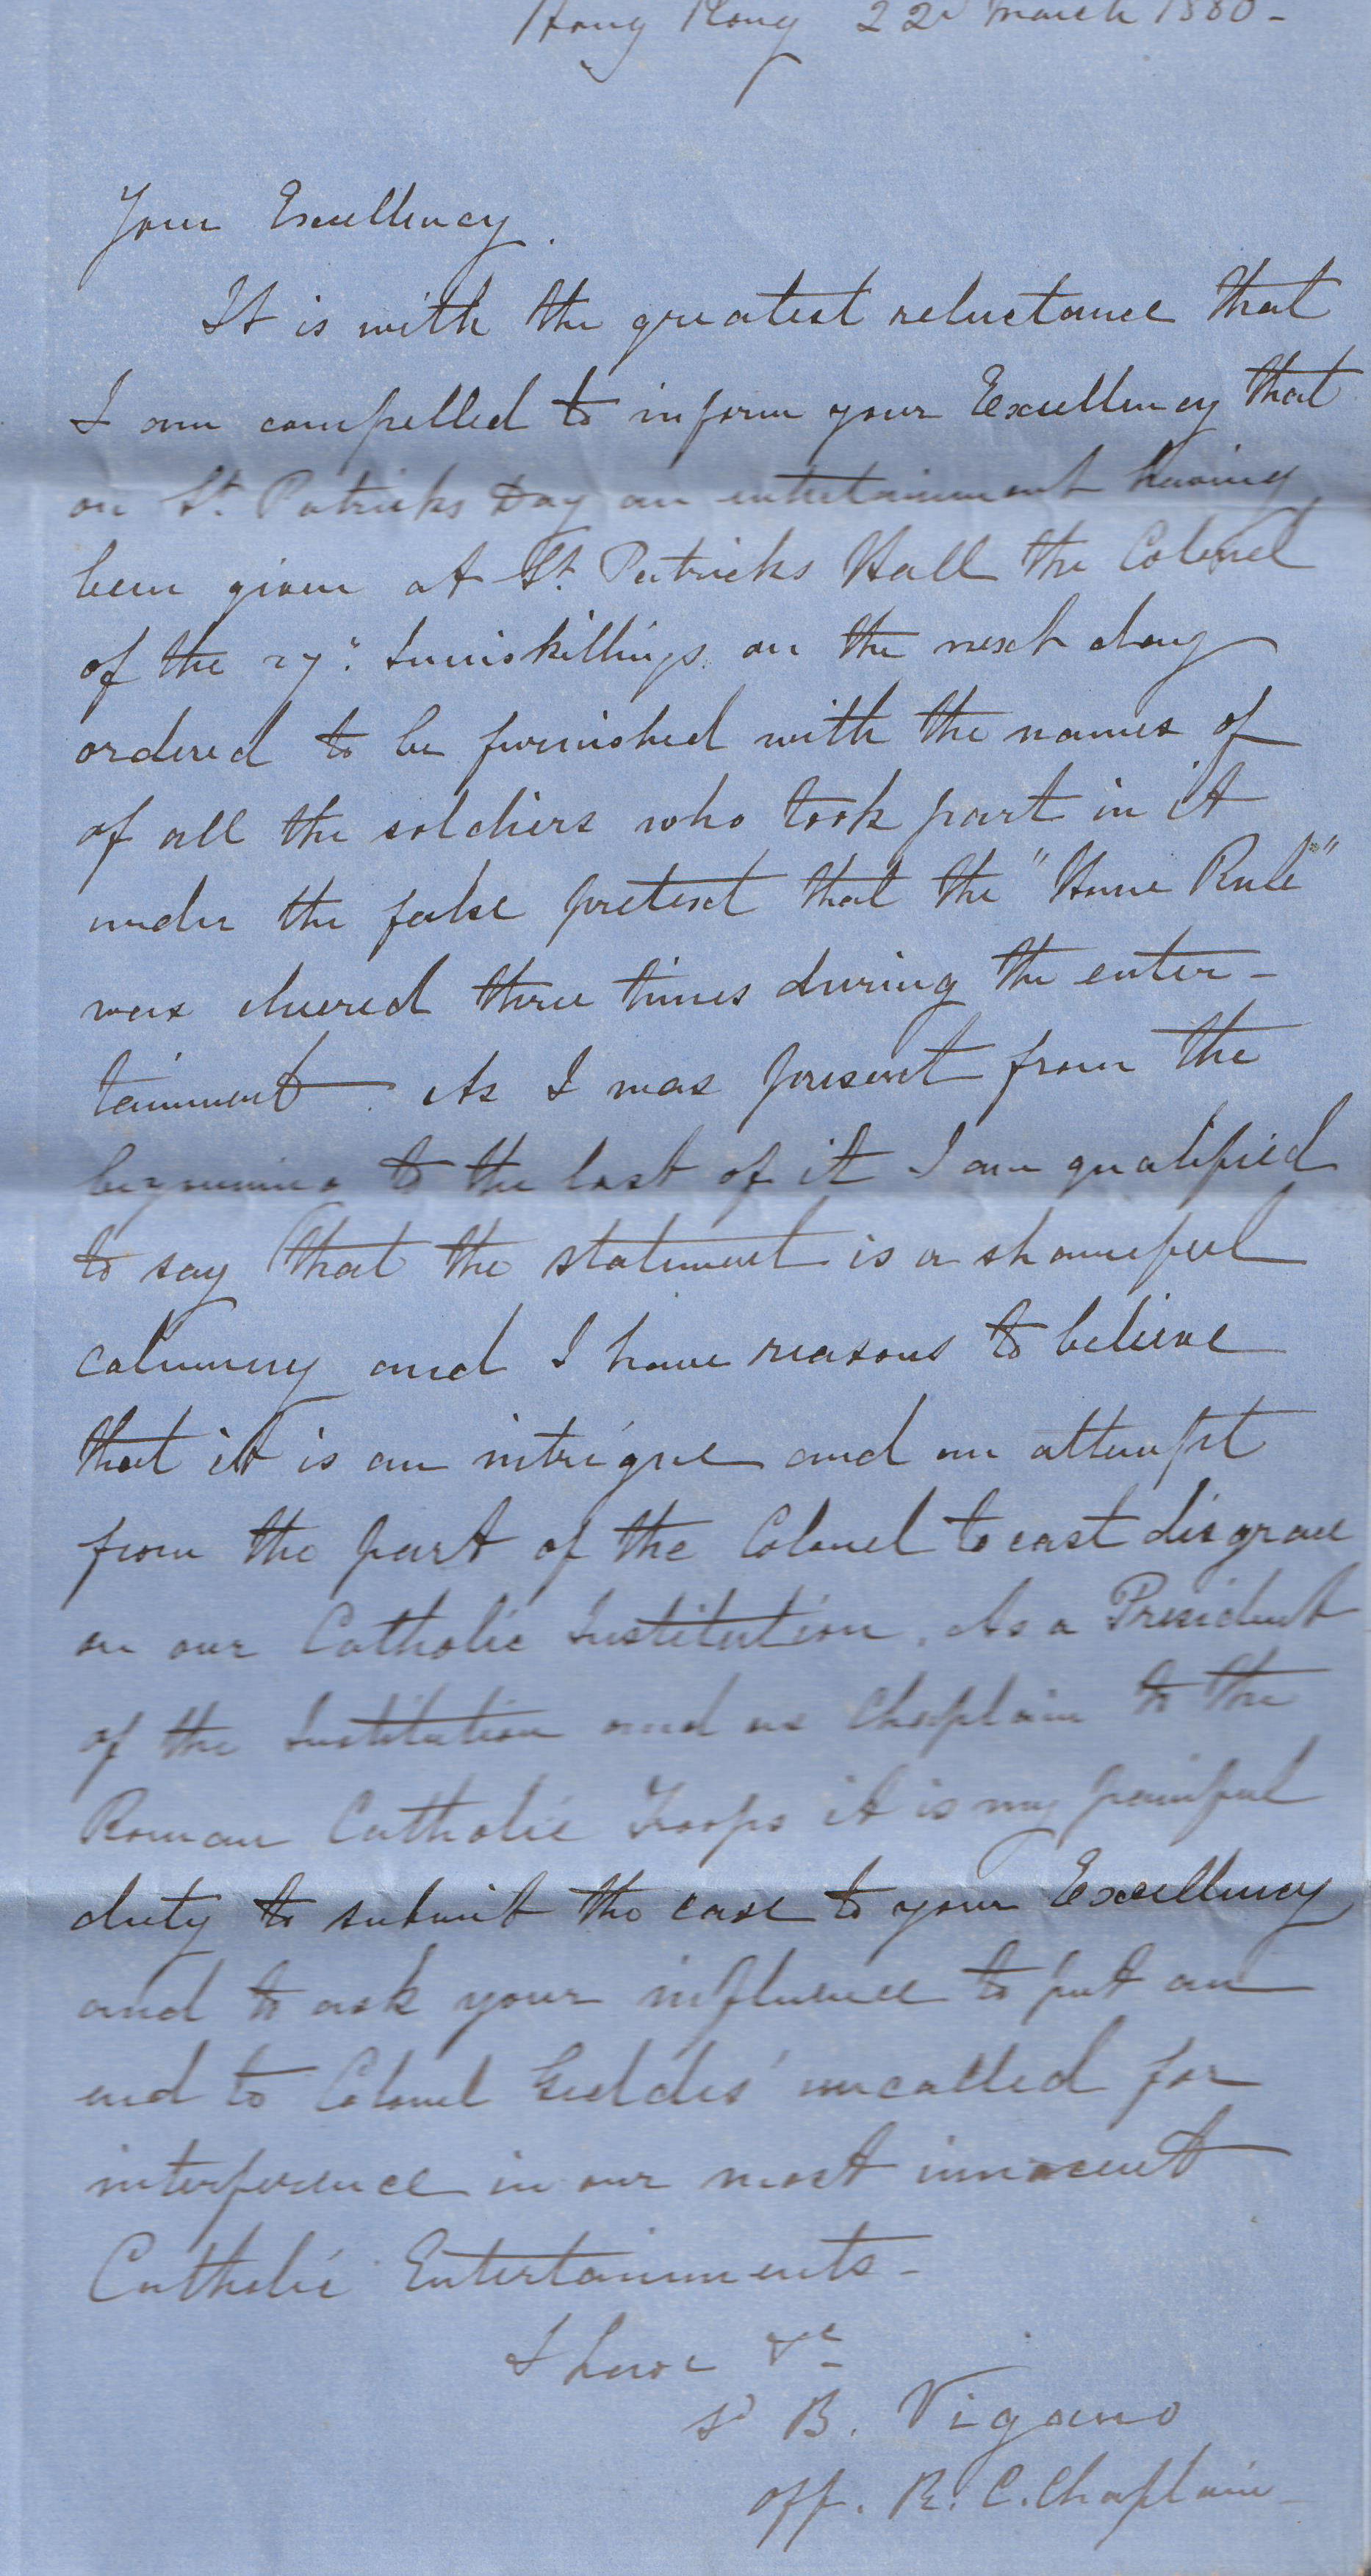 Hong Kong 22d March 1880 -
Your Excellency.
It is with the greatest reluctance that
I am compelled to inform your Excellency that
on St. Patricks Day an entertainment having
been given at St. Patricks Hall the Colonel
of the 27th Inniskillings on the next day
ordered to be furnished with the names of
of all the soldiers who took part in it
under the false pretext that the "Home Rule"
was cheered three times during the enter-
tainment. As I was present from the
beginning to the last of it I am qualified
to say that the statement is a shameful
calumny and I have reasons to believe
that it is an intrigue and an attempt
from the part of the Colonel to cast disgrace
on our Catholic Institution. As a President
of the Institution and as Chaplain to the
Roman Catholic Troops it is my painful
duty to submit the case to your Excellency
and to ask your influence to put an
end to Colonel Geddes' uncalled for
interference in our most innocent
Catholic Entertainments -
I have &c
sd B. Vigano
off. R. C. Chaplain